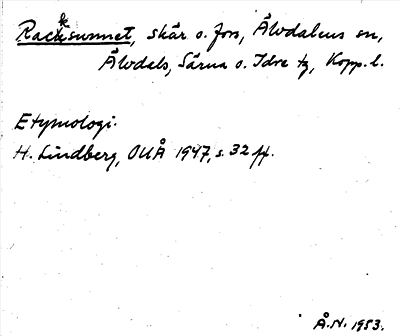 Racksunnet, skär o. fors, Älvdalens sn,
Älvdals, Särna o. Idre tg, Kopp. l.
Etymologi.
H. Lindberg, OUÅ 1947, s. 32 ff.
Å.N. 1953.